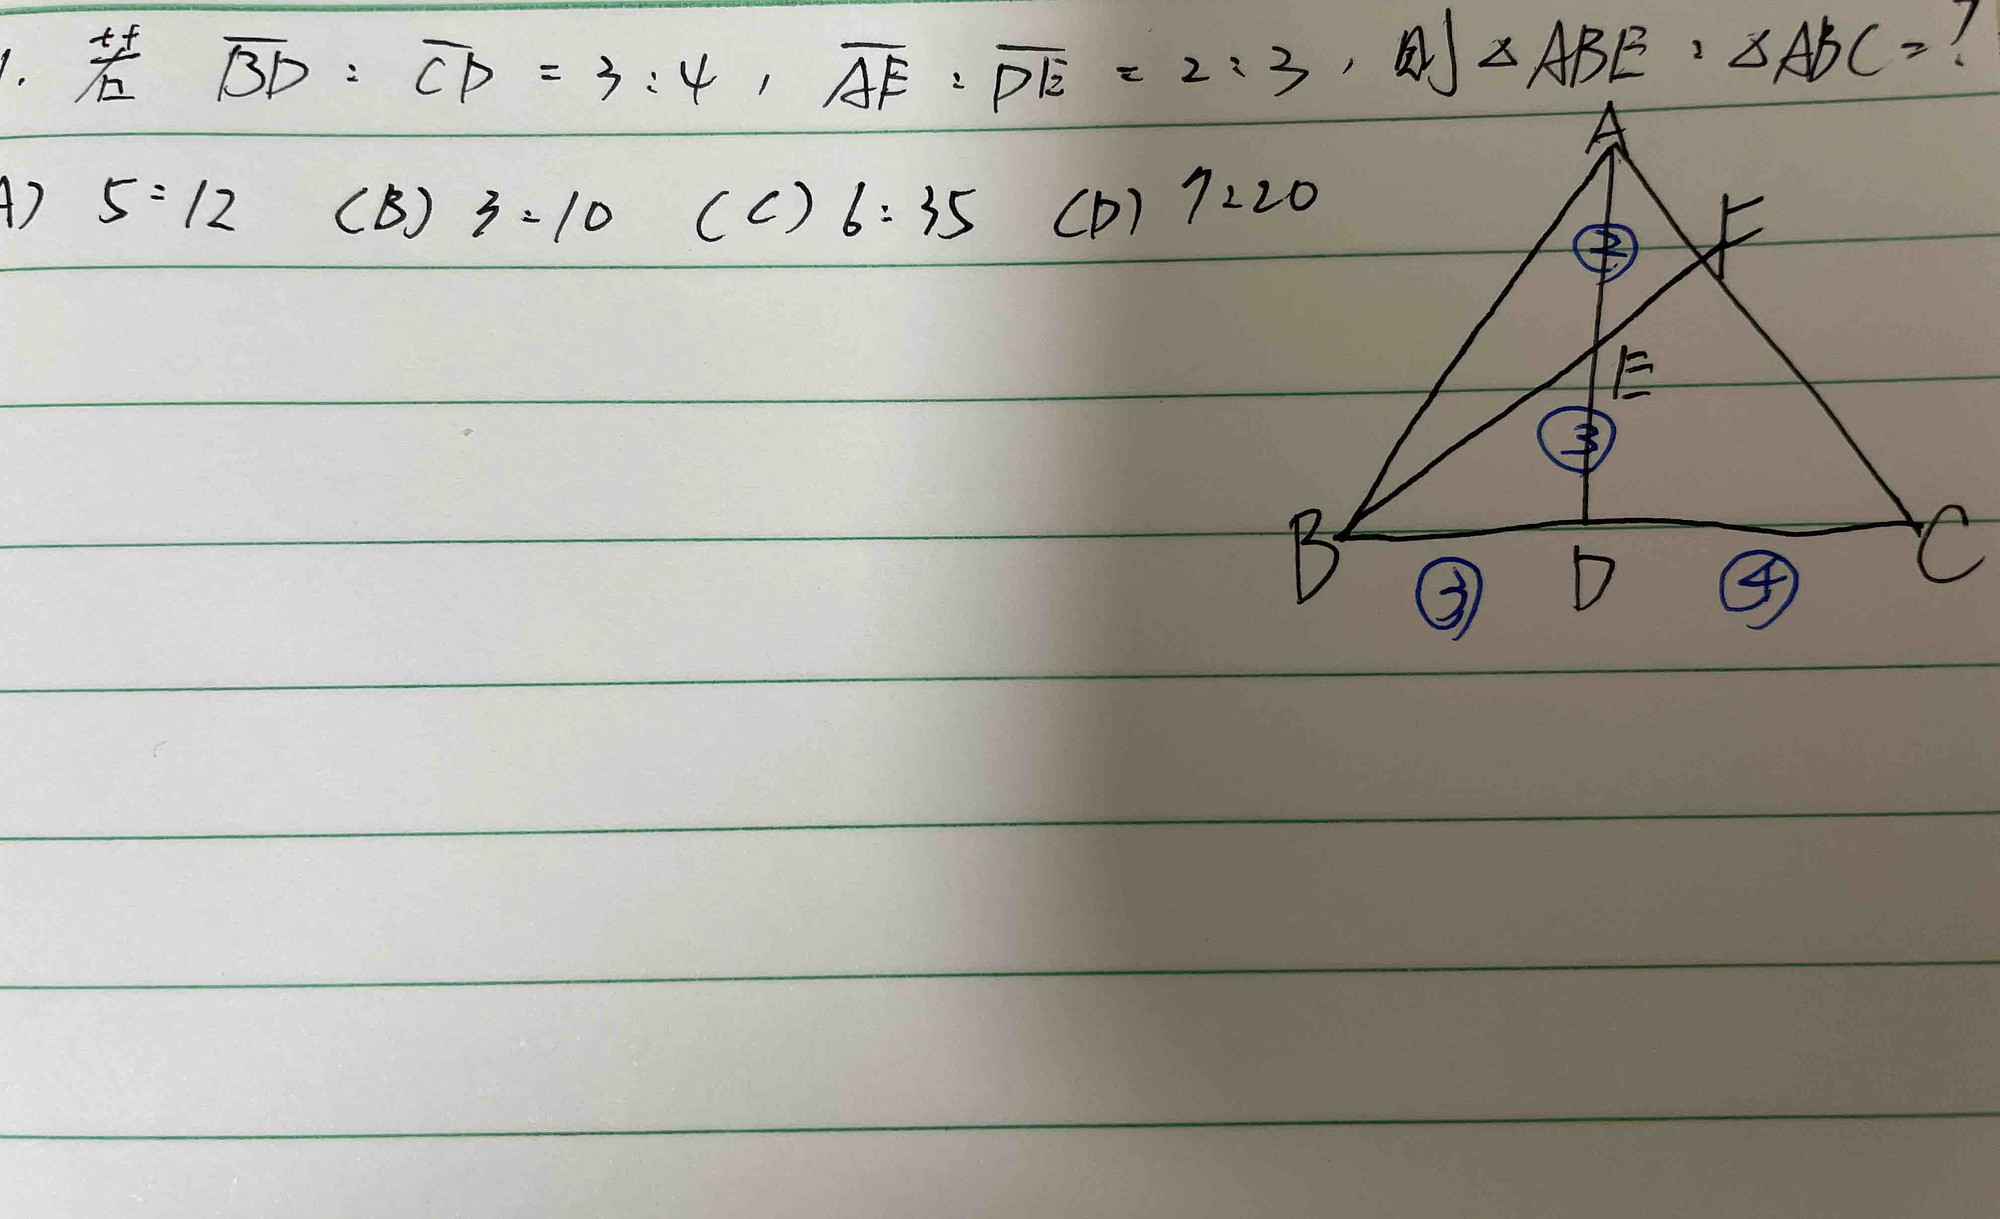 1. 若 BD : CD = 3 : 4 , AE : DE = 2 : 3 , 則 △ABE : △ABC = ?
A) 5 : 12 (B) 3 : 10 (C) 6 : 35 (D) 7 : 20
A
F
②
E
③
B D C
③ ④